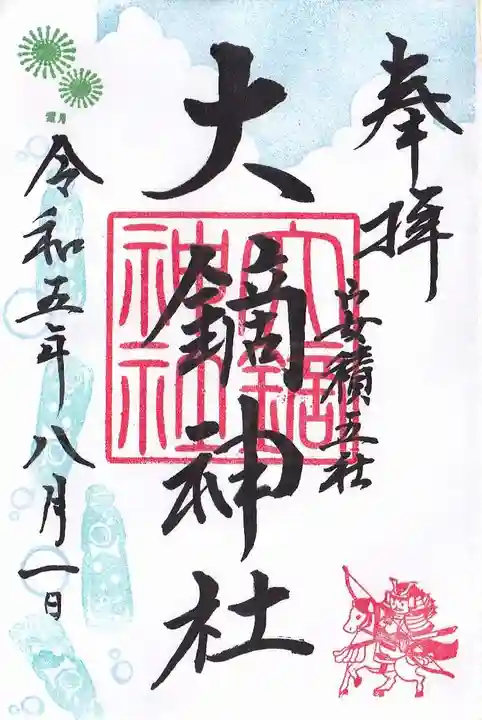 奉拝
安積五社
大鏑神社
大鏑神社
令和五年八月一日